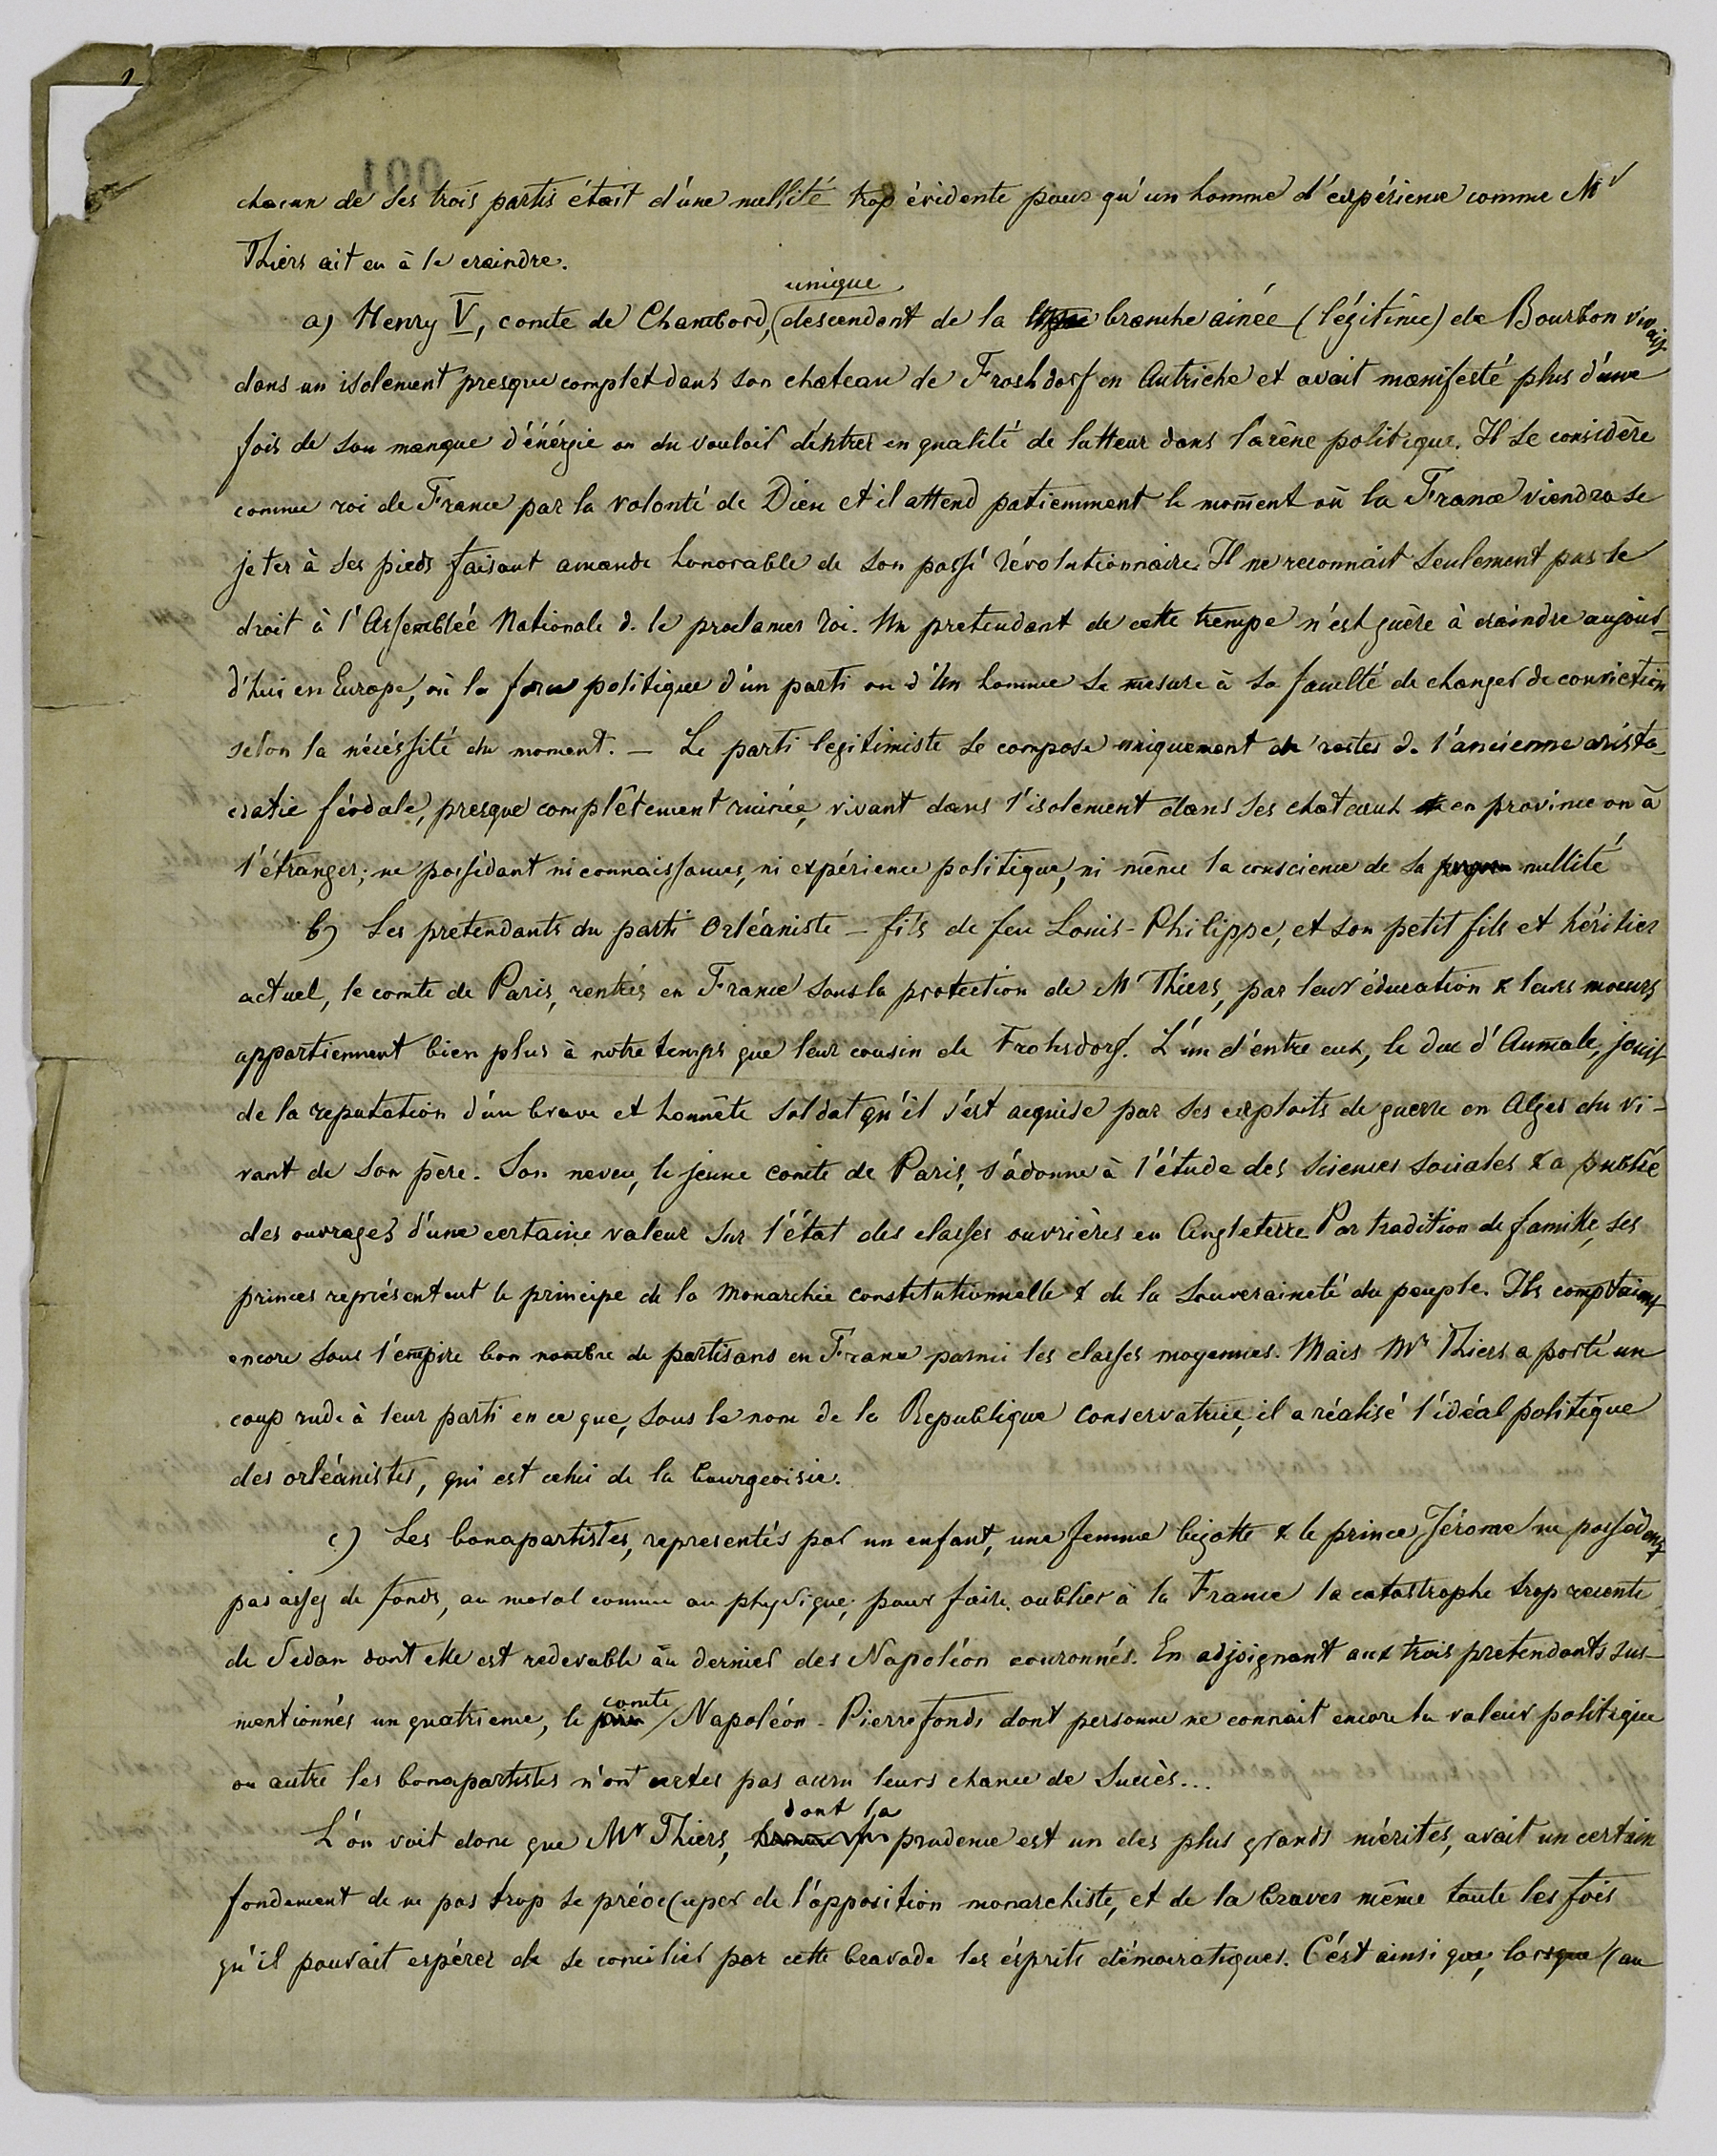 chacun de ses trois partis était d'une nullité trop évidente pour qu'un homme d'expérience comme Mr
Thiers ait eu à le craindre.
unique
a) Henry V, comte de Chambord, (descendant de la branche ainée (légitime) de Bourbon vivait
dans un isolement presque complet dans son chateau de Froshdorf en Autriche et avait manifesté plus d'une
fois de son manque d'énérgie ou du vouloir d'entrer en qualité de lutteur dans l'arène politique. Il se considère
comme roi de France par la volonté de Dieu et il attend patiemment le moment où la France viendra se
jeter à ses pieds faisant amande honorable de son passé révolutionnaire. Il ne reconnait seulement pas le
droit à l'Assemblée Nationale d. le proclamer roi. Un pretendant de cette trempe n'est guère à craindre aujour-
d'hui en Europe, où la force politique d'un parti ou d'un homme se mesure à sa faculté de changer de conviction
selon la nécéssité du moment. — Le parti legitimiste se compose uniquement de restes de l'ancienne aristo-
cratie féodale, presque complêtement ruinée, vivant dans l'isolement dans ses chateaux en province ou à
l'étranger; ne possédant ni connaissances, ni expérience politique, ni même la conscience de sa nullité
b) Les pretendants du parti Orléaniste – fils de feu Louis-Philippe, et son petit fils et héritier
actuel, le comte de Paris, rentrés en France sous la protection de Mr Thiers, par leur éducation & leurs moeurs
appartiennent bien plus à notre temps que leur cousin de Frohsdorf. L'un d'entre eux, le duc d'Aumale, jouit
de la reputation d'un brave et honnête soldat qu'il s'est acquise par ses exploits de guerre en Alger du vi-
vant de son père. Son neveu, le jeune comte de Paris, s'adonne à l'étude des sciences sociales & a publié
des ouvrages d'une certaine valeur sur l'état des classes ouvrières en Angleterre. Par tradition de famille, ses
princes représentent le principe de la Monarchie constitutionnelle & de la souveraineté du peuple. Ils comptaient
encore sous l'empire bon nombre de partisans en France parmi les classes moyennes. Mais Mr Thiers a porté un
coup rude à leur parti en ce que, sous le nom de la Republique conservatrice, il a réalisé l'idéal politique
des orléanistes, qui est celui de la bourgeoisie.
c) Les bonapartistes, representés par un enfant, une femme bigotte & le prince Jérome ne possèdent
pas assez de fonds, au moral comme au physique, pour faire oublier à la France la catastrophe trop recente
de Sedan dont elle est redevable au dernier des Napoléon couronnés. En adjoignant aux trois pretendants sus-
comte
mentionnés un quatrieme, le Napoléon-Pierrefonds dont personne ne connait encore la valeur politique
ou autre les bonapartistes n'ont certes pas accru leurs chance de succès...
dont la
L'on voit donc que Mr Thiers, prudence est un des plus grands mérites, avait un certain
fondement de ne pas trop se préoccuper de l'opposition monarchiste, et de la braver même toute les fois
qu'il pouvait espérer de se concilier par cette bravade les ésprits démocratiques. C'est ainsi que, lorsque (au